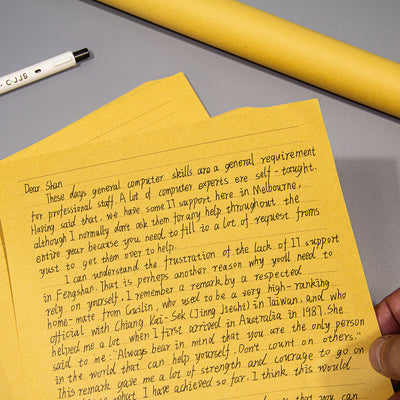 C-JJ6
Dear Shan
These days general computer skills are a general requirement
for professional staff. A lot of computer experts ere self-taught.
Having said that, we have some IT support here in Melbourne,
although I normally don't ask them for any help throughout the
entire year because you need to fill in a lot of request froms
just to get them over to help.
I can understand the frustration of the lack of IT support
in Fengshan. That is perhaps another reason why you'll need to
rely on yourself. I remember a remark by a respected
home-mate from Guilin, who used to be a very high-ranking
official with Chiang Kai-Sek (Jinng Jieshi) in Taiwan, and who
helped me a lot when I first arrived in Australia in 1987. She
said to me: "Always bear in mind that you are the only person
in the world that can help yourself. Don't count on others."
This remark gave me a lot of strength and courage to go on
what I have achieved so far. I think this would
that you can